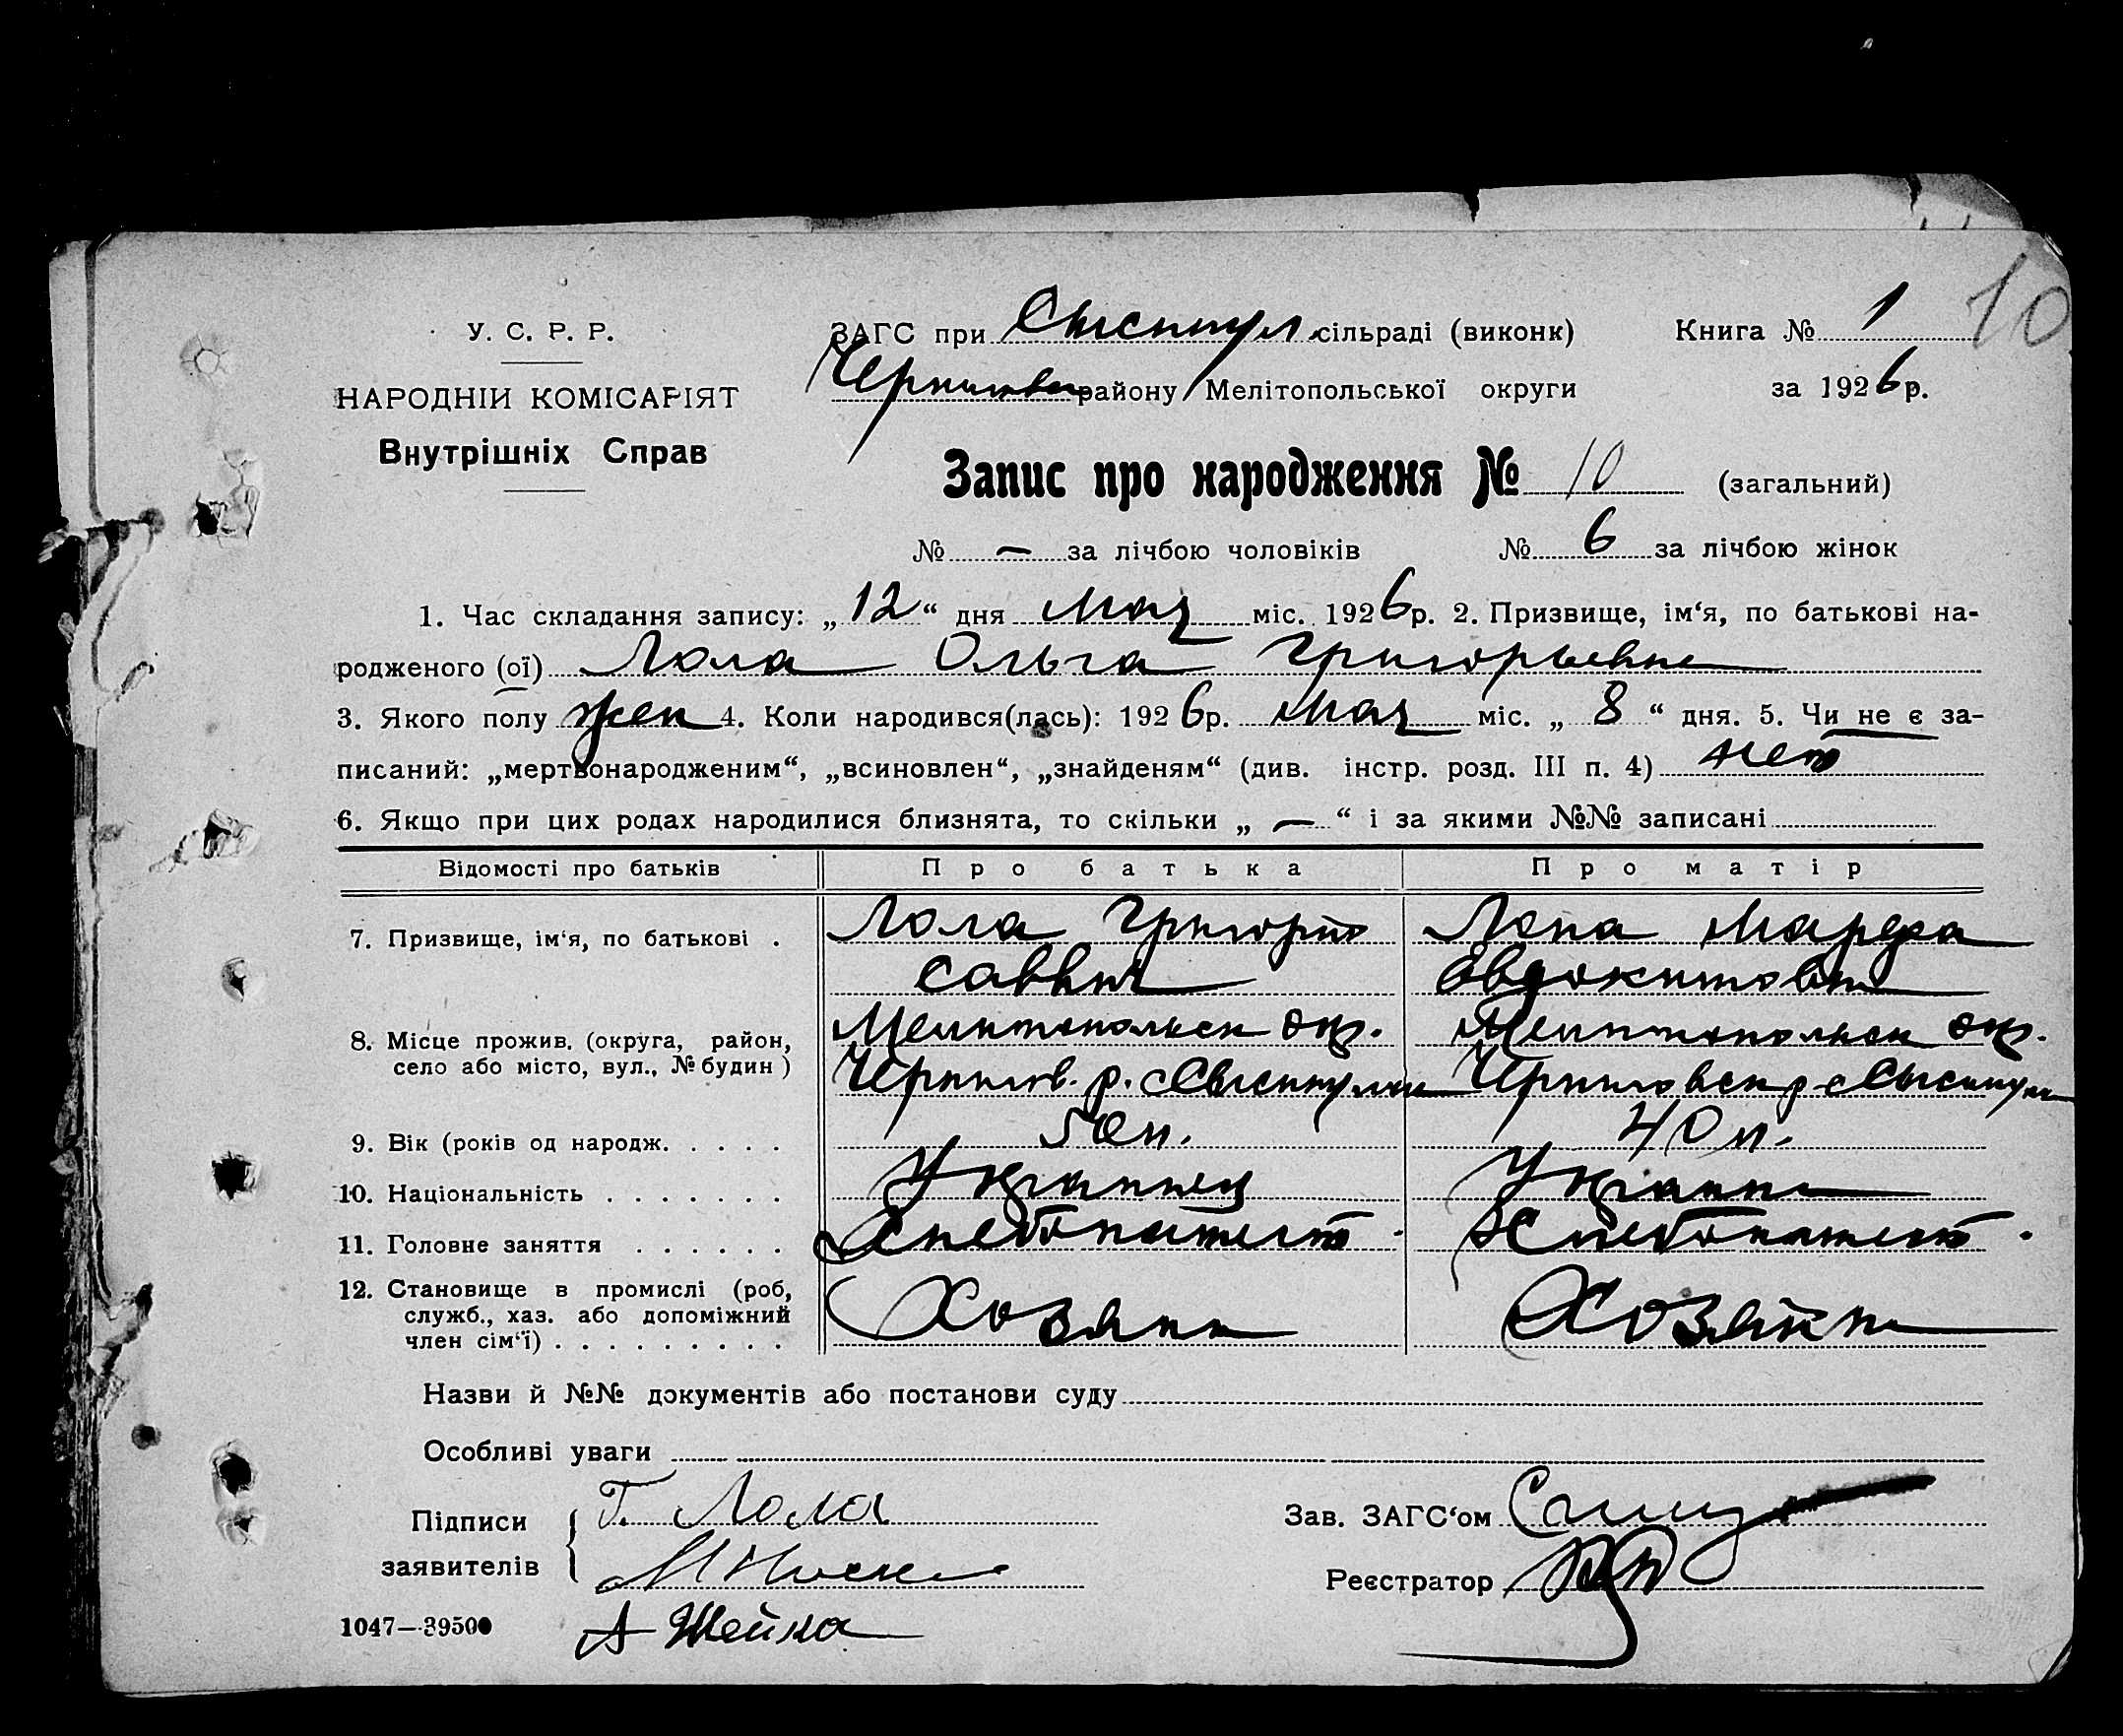 10
У. С. Р. Р.
ЗАГС при сільраді (виконк) Книга № 1
НАРОДНІЙ КОМІСАРІЯТ
району Мелітопольської округи за 1926 р.
Внутрішніх Справ
Запис про народження № 10 (загальний)
№ — за лічбою чоловіків № 6 за лічбою жінок
1. Час складання запису: „12“ дня мая міс. 1926 р. 2. Призвище, ім‘я, по батькові на-
родженого (ої) Лола Ольга Григорьевна
3. Якого полу жен 4. Коли народився(лась): 1926 р. мая міс. „8“ дня. 5. Чи не є за-
писаний: „мертвонародженим“, „всиновлен“, „знайденям“ (див. інстр. розд. III п. 4) нет
6. Якщо при цих родах народилися близнята, то скільки „—“ і за якими №№ записані
Відомості про батьків Про батька Про матір
7. Призвище, ім‘я, по батькові . Лола Григорий Лола Марфа
Саввич Евдокимовна
8. Місце прожив. (округа, район, Мелитопольск окр. Мелитопольск окр.
село або місто, вул., № будин) Чернигов. р. с Черниговск р с
9. Вік (років од народж. . . . . 50 л. 40 л.
10. Національність . . . . . . . Украинец Украин
11. Головне заняття . . . . . . Хлебопашест. Хлебопашест.
12. Становище в промислі (роб, Хозяин Хозяйка
служб., хаз. або допоміжний
член сім‘ї) . . . . . . . . .
Назви й №№ документів або постанови суду
Особливі уваги
Підписи Г. Лола Зав. ЗАГС‘ом
заявителів Реєстратор
1047—39500 А Шейка